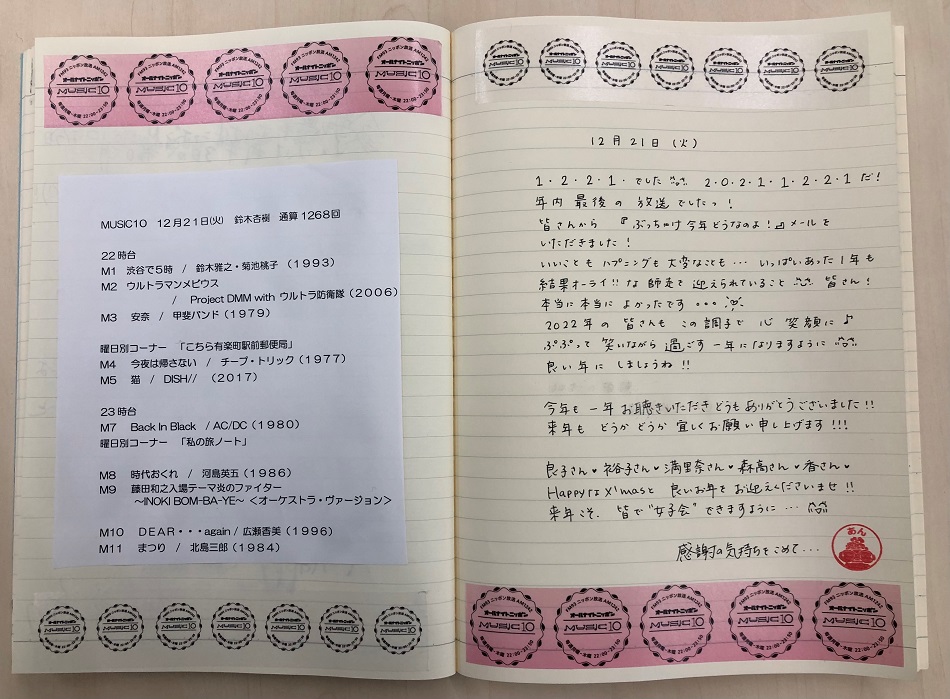 FM93 ニッポン放送 AM1242
オールナイトニッポン
MUSIC10
毎週月曜-木曜 22:00-23:50
MUSIC10 12月21日(火) 鈴木杏樹 通算1268回
22時台
M1 渋谷で5時 / 鈴木雅之・菊池桃子 (1993)
M2 ウルトラマンメビウス
/ Project DMM with ウルトラ防衛隊 (2006)
M3 安奈 / 甲斐バンド (1979)
曜日別コーナー 「こちら有楽町駅前郵便局」
M4 今夜は帰さない / チープ・トリック (1977)
M5 猫 / DISH// (2017)
23時台
M7 Back In Black / AC/DC (1980)
曜日別コーナー 「私の旅ノート」
M8 時代おくれ / 河島英五 (1986)
M9 藤田和之入場テーマ炎のファイター
～INOKI BOM-BA-YE～ <オーケストラ・ヴァージョン>
M10 DEAR・・・again / 広瀬香美 (1996)
M11 まつり / 北島三郎 (1984)
12月21日 (火)
1・2・2・1・でした 2・0・2・1・1・2・2・1 だ!
年内 最後の 放送でしたっ!
皆さんから 『ぶっちゃけ今年どうなのよ!』メールを
いただきました!
いいことも ハプニングも 大変なことも… いっぱいあった1年も
結果オーライ!! な 師走で 迎えられていること 皆さん!
本当に本当に よかったです 。。。
2022年の 皆さんも この調子で 心 笑顔に♪
ぷぷって 笑いながら 過ごす 一年になりますように
良い年に しましょうね!!
今年も 一年 お聴きいただき どうも ありがとうございました!!
来年も どうか どうか 宜しくお願い申し上げます!!!
良子さん♥裕子さん♥満里奈さん♥森高さん♥香さん♥
HappyなX'masと 良いお年を お迎えくださいませ!!
来年こそ、皆で"女子会"できますように…
感謝の気持ちをこめて…
あん